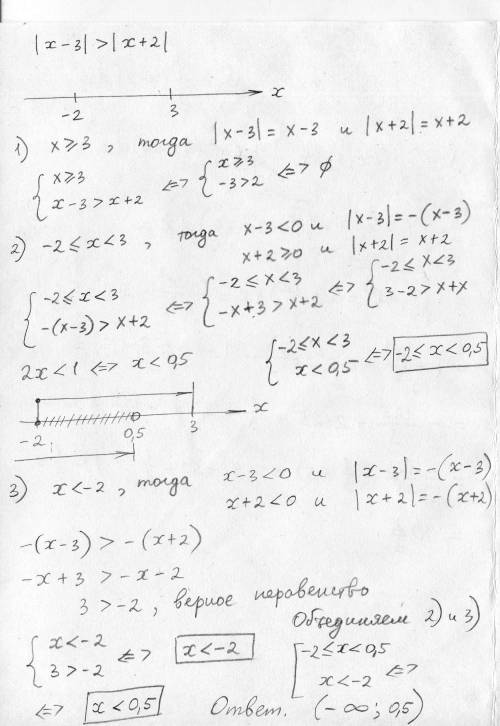 |x-3|>|x+2|
-2 3 x
1) x⩾3, тогда |x-3|=x-3 и |x+2|=x+2
{x⩾3 x-3>x+2 <=> {x⩾3 -3>2 <=> ∅
2) -2≤x<3, тогда x-3<0 и |x-3|=-(x-3)
x+2⩾0 и |x+2|=x+2
{-2≤x<3 -(x-3)>x+2 <=> {-2≤x<3 -x+3>x+2 <=> {-2≤x<3 3-2>x+x
2x<1 <=> x<0,5 {-2≤x<3 x<0,5 <=> -2≤x<0,5
-2 0,5 3 x
3) x<-2, тогда x-3<0 и |x-3|=-(x-3)
x+2<0 и |x+2|=-(x+2)
-(x-3)>-(x+2)
-x+3>-x-2
3>-2, верное неравенство
Объединяем 2) и 3)
{x<-2 3>-2 <=> x<-2 [-2≤x<0,5 x<-2 <=>
<=> x<0,5 Ответ. (-∞; 0,5)